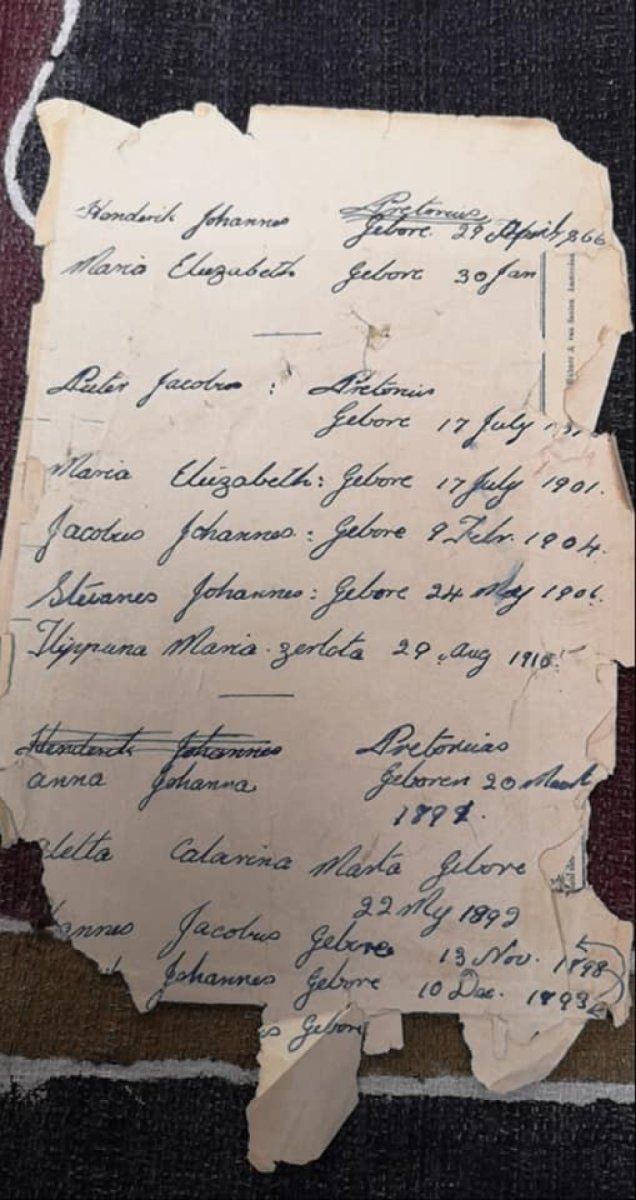 Henderik Johannes Pretorius
Gebore 29 April 1866
Maria Eliezabeth Gebore 30 Jan
Pieter Jacobus : Pretorius
Gebore 17 July
Maria Eliezabeth : Gebore 17 July 1901.
Jacobus Johannes : Gebore 9 Febr. 1904.
Stevanes Johannes : Gebore 24 My 1906.
Flippuna Maria zerlota 29 Aug 1910
Henderik Johannes Pretorius
anna Johanna Geboren 20 Maart
1891.
letta Catarina Marta Gebore
22 My 1892
annes Jacobus Gebore 13 Nov. 1898
Johannes Gebore 10 Dec. 1893
es Gebore